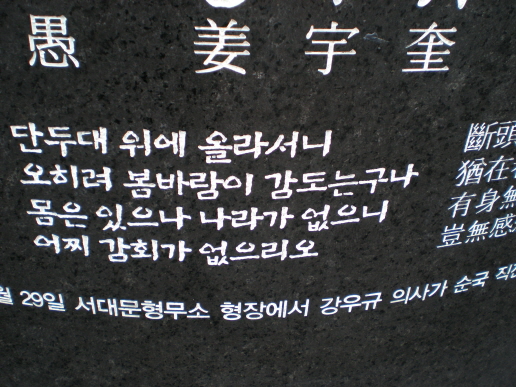 愚 姜宇奎
단두대 위에 올라서니
오히려 봄바람이 감도는구나
몸은 있으나 나라가 없으니
어찌 감회가 없으리오
斷頭
猶在
有身無
豈無感
월 29일 서대문형무소 형장에서 강우규 의사가 순국 직전